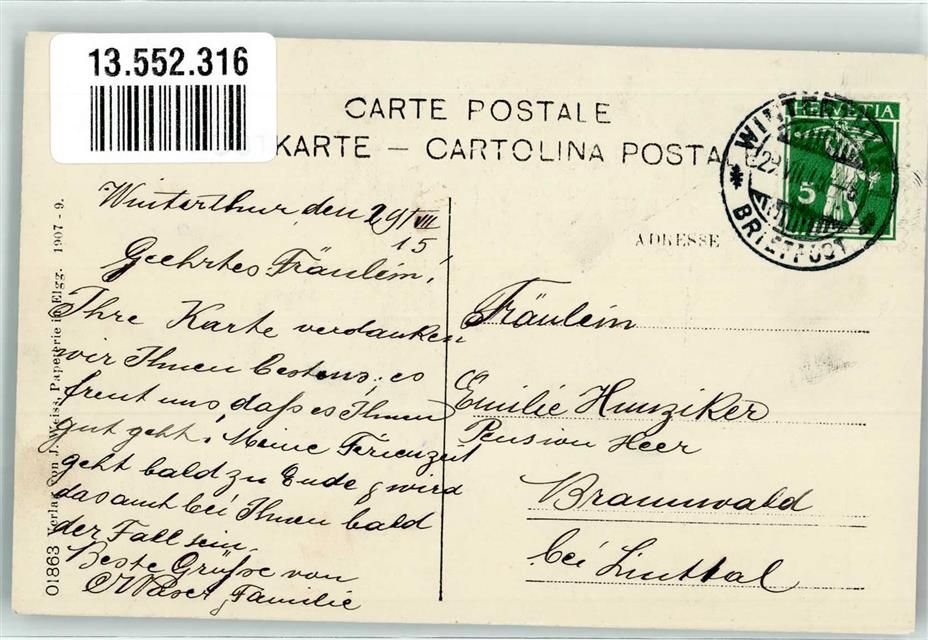 13.552.316
CARTE POSTALE
KARTE – CARTOLINA POSTA
HELVETIA
5
WINTERT
BRIEFPOST
ADRESSE
Winterthur den 29/VII
15
Geehrtes Fräulein!
Ihre Karte verdanken
wir Ihnen bestens, es
freut uns, daß es Ihnen
gut geht. Meine Ferienzeit
geht bald zu Ende & wird
das auch bei Ihnen bald
der Fall sein.
Beste Grüße von
Familie
Fräulein
Emilie Hunziker
Pension Heer
Braunwald
bei Linttal
01863 Verlag von J. Weiss, Papeterie in Elgg. 1907 - 9.